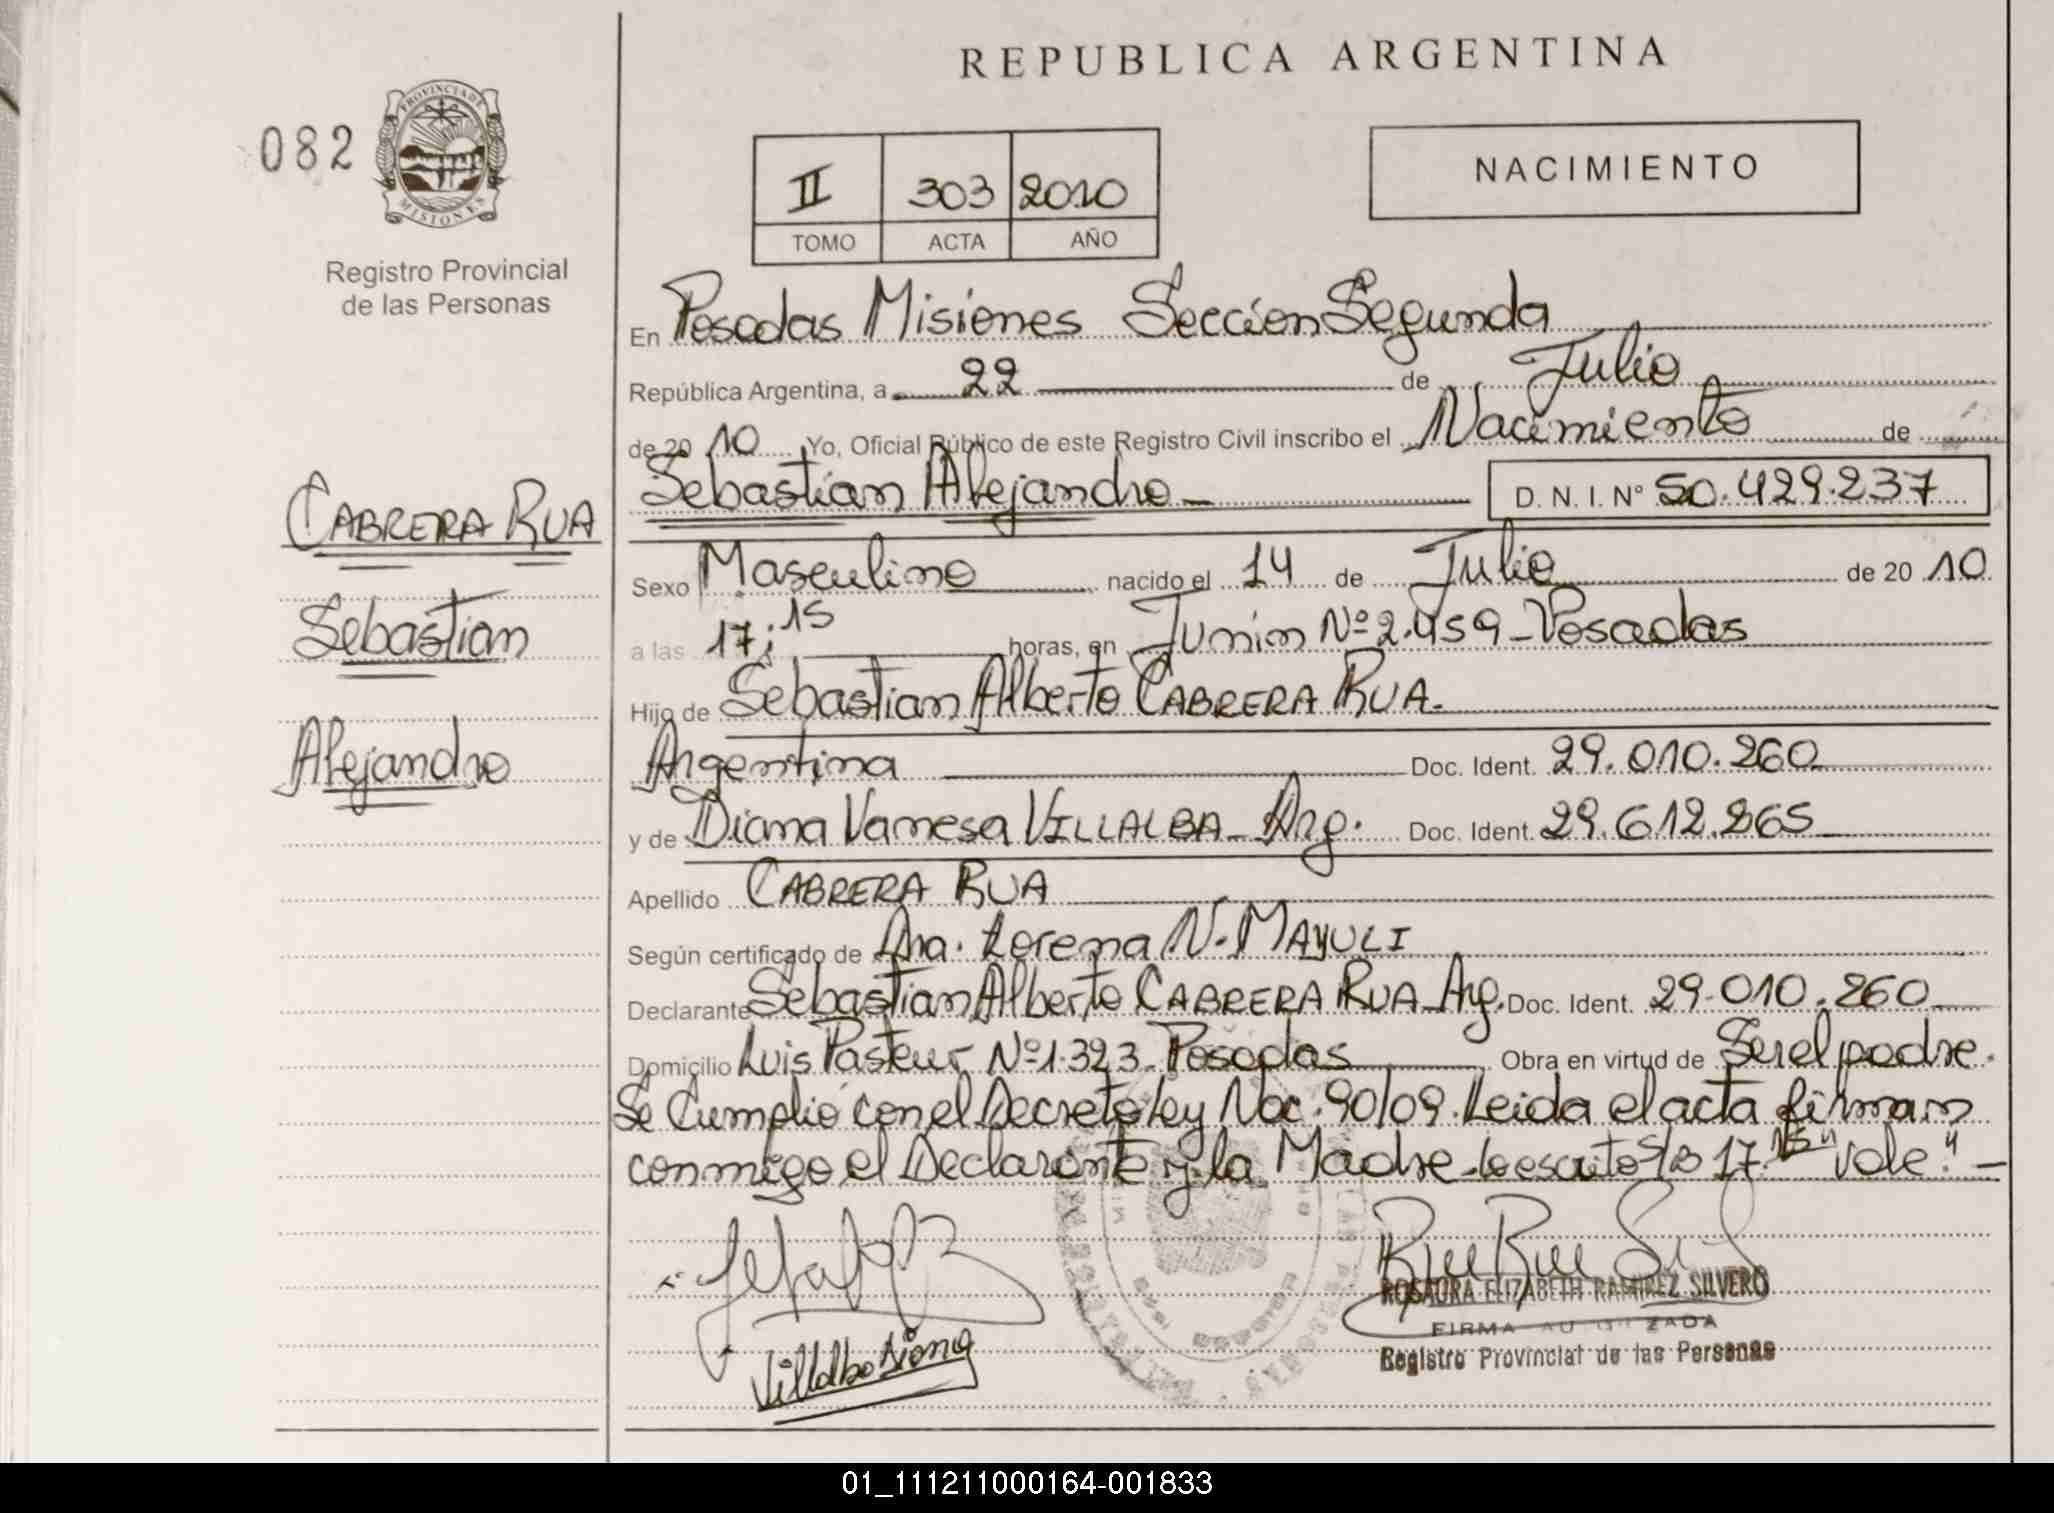 REPUBLICA ARGENTINA
082
PROVINCIA DE
MISIONES
Registro Provincial
de las Personas
II 303 2010
TOMO ACTA AÑO
NACIMIENTO
En Posadas Misiones Sección Segunda
República Argentina, a 22 de Julio
de 20 10 Yo, Oficial Público de este Registro Civil inscribo el Nacimiento de
Sebastian Alejandro D. N. I. Nº 50.429.237
CABRERA RUA
Sebastian
Alejandro
Sexo Masculino nacido el 14 de Julio de 20 10
a las 17:15 horas, en Junin Nº 2.459 - Posadas
Hijo de Sebastian Alberto CABRERA RUA.
Argentina Doc. Ident. 29.010.260
y de Diana Vanesa VILLALBA - Arg. Doc. Ident. 29.612.265
Apellido CABRERA RUA
Según certificado de Dra. Lorena N. MAYULI
Declarante Sebastian Alberto CABRERA RUA Arg. Doc. Ident. 29.010.260
Domicilio Luis Pasteur Nº 1.323 - Posadas Obra en virtud de Ser el padre.
Se Cumplió con el Decreto Ley Nac. 90/09. Leida el acta firman
conmigo el Declarante y la Madre. Lo escrito s/b 17.15 "vale". -
Villalba Diana
ROSAURA ELIZABETH RAMIREZ SILVERO
FIRMA AUTORIZADA
Registro Provincial de las Personas
01_111211000164-001833